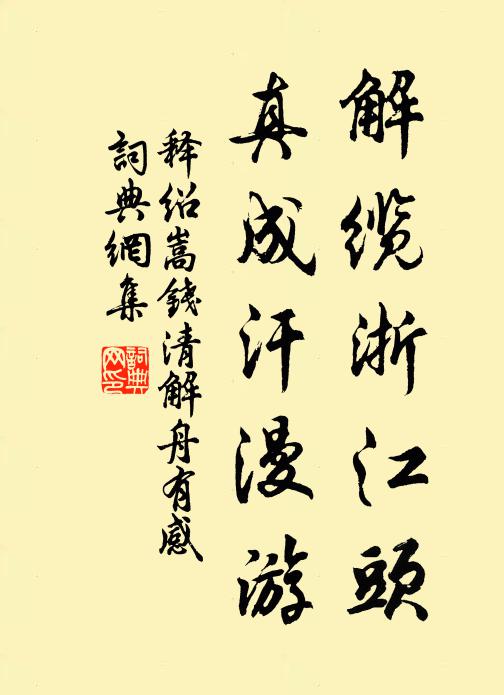 解缆浙江頭
真成汗漫游
释绍嵩錢清解舟有感
詞典網集
詞典
网印